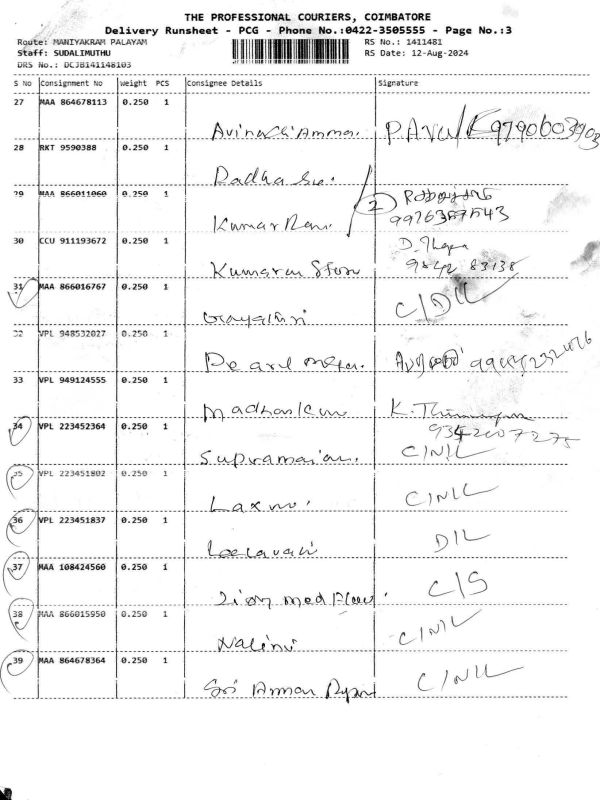 THE PROFESSIONAL COURIERS, COIMBATORE
Delivery Runsheet - PCG - Phone No.:0422-3505555 - Page No.:3
Route: MANIYAKRAM PALAYAM RS No.: 1411481
Staff: SUDALIMUTHU RS Date: 12-Aug-2024
DRS No.: DCJB141148103
S No Consignment No Weight PCS Consignee Details Signature
27 MAA 864678113 0.250 1
9790603903
28 RKT 9590388 0.250 1
Radha
29 MAA 866011060 0.250 1
2
Kumar Rani 9976387543
30 CCU 911193672 0.250 1
Kumaran Store 9842 83138
31 MAA 866016767 0.250 1
Gayathri C/DIL
32 VPL 948532027 0.250 1
33 VPL 949124555 0.250 1
Madhan Kum K.
9342607275
34 VPL 223452364 0.250 1
C/NIL
35 VPL 223451802 0.250 1
Laxmi. C/NIL
36 VPL 223451837 0.250 1
Leelavati DIL
37 MAA 108424560 0.250 1
Zion med C/S
38 MAA 866015950 0.250 1
Nalini C/NIL
39 MAA 864678364 0.250 1
Sri Amman C/NIL